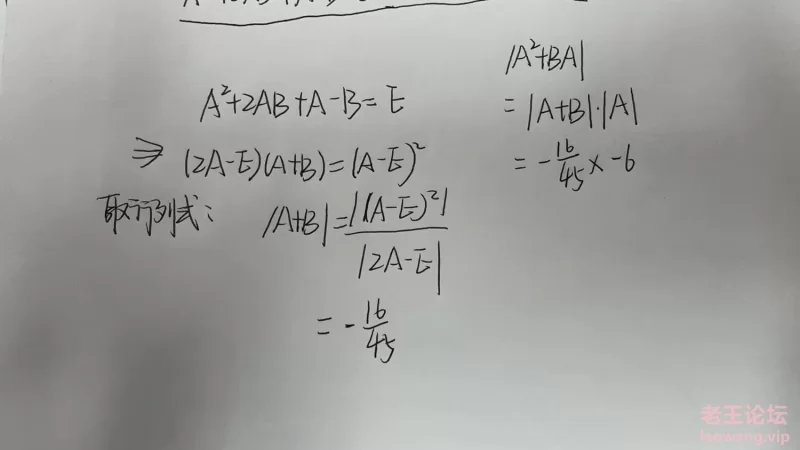 A²+2AB+A-B=E
⇒ (2A-E)(A+B)=(A-E)²
取行列式: |A+B|=|(A-E)²|/|2A-E|
=-16/45
|A²+BA|
=|A+B|·|A|
=-16/45×-6
老王论坛
laowang.vip